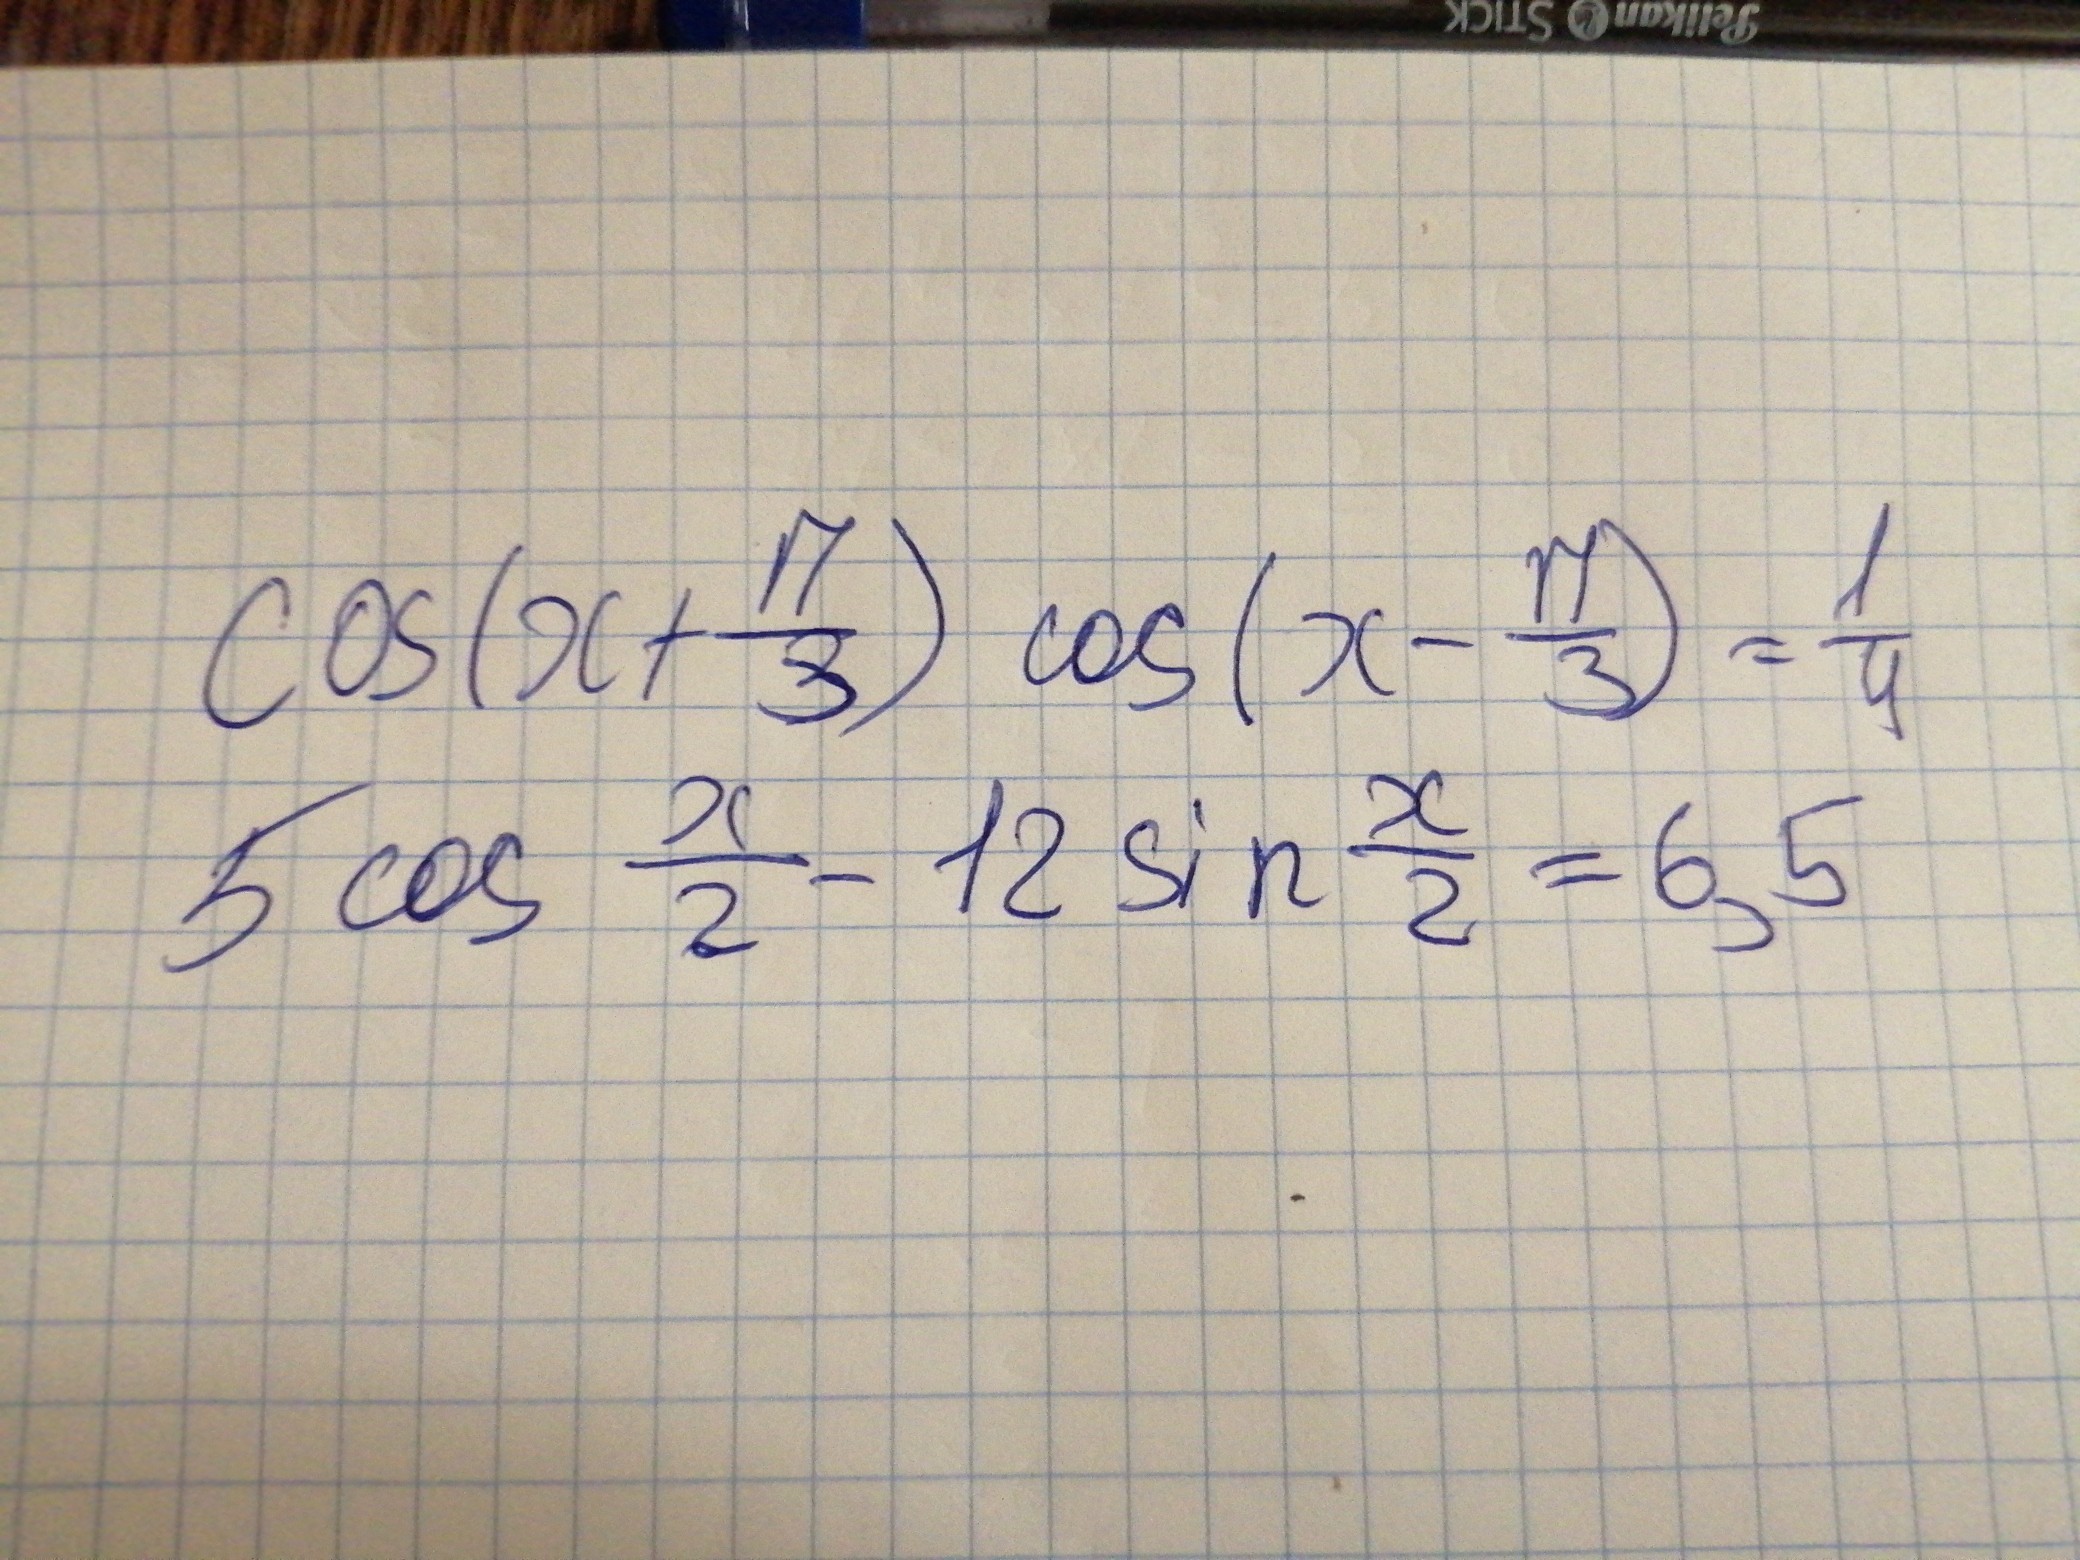 Pelikan STICK
cos(x+π/3) cos(x-π/3)=1/4
5 cos x/2 - 12 sin x/2 = 6,5